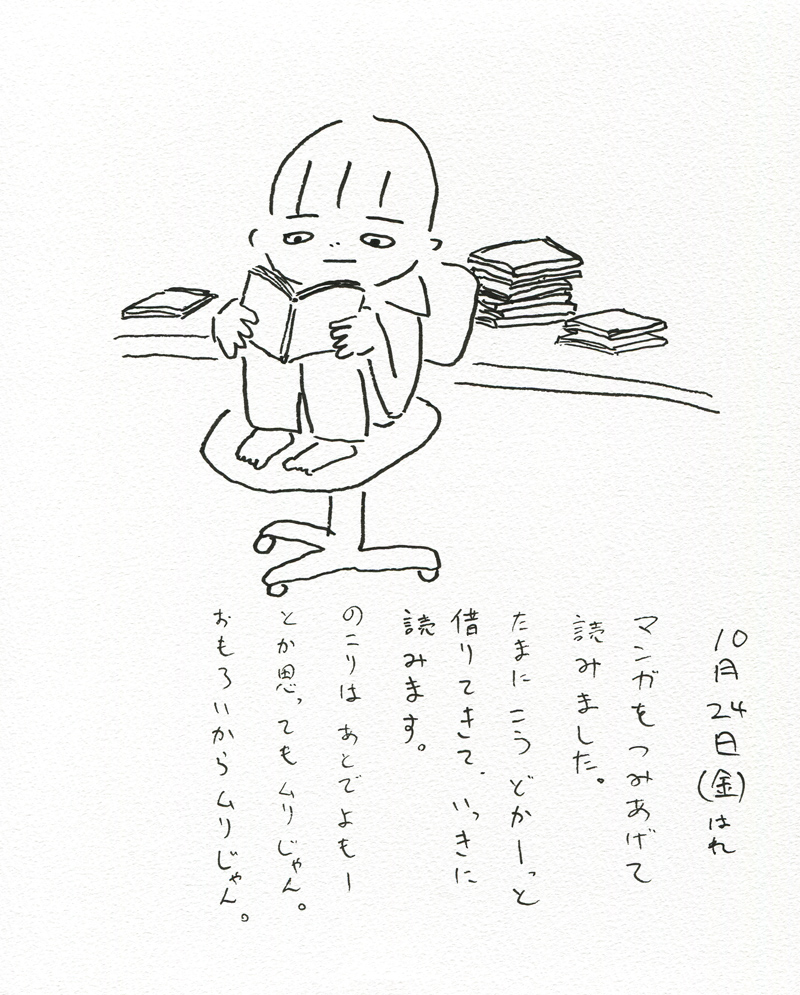 10月24日(金)はれ
マンガをつみあげて
読みました。
たまにこうどかーっと
借りてきて、いっきに
読みます。
のこりは あとでよもー
とか思っても ムリじゃん。
おもろいからムリじゃん。